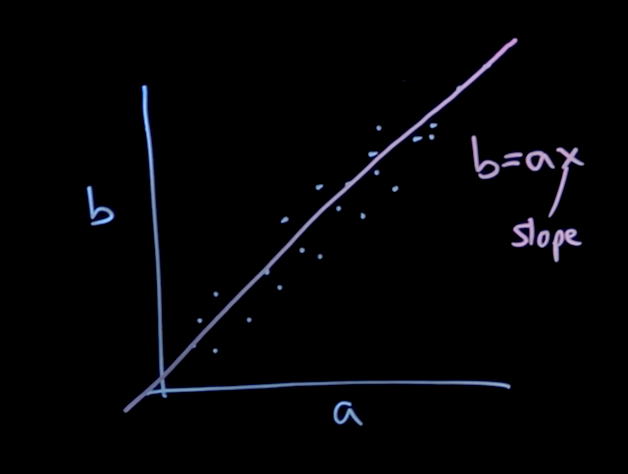 b
b=ax
slope
a